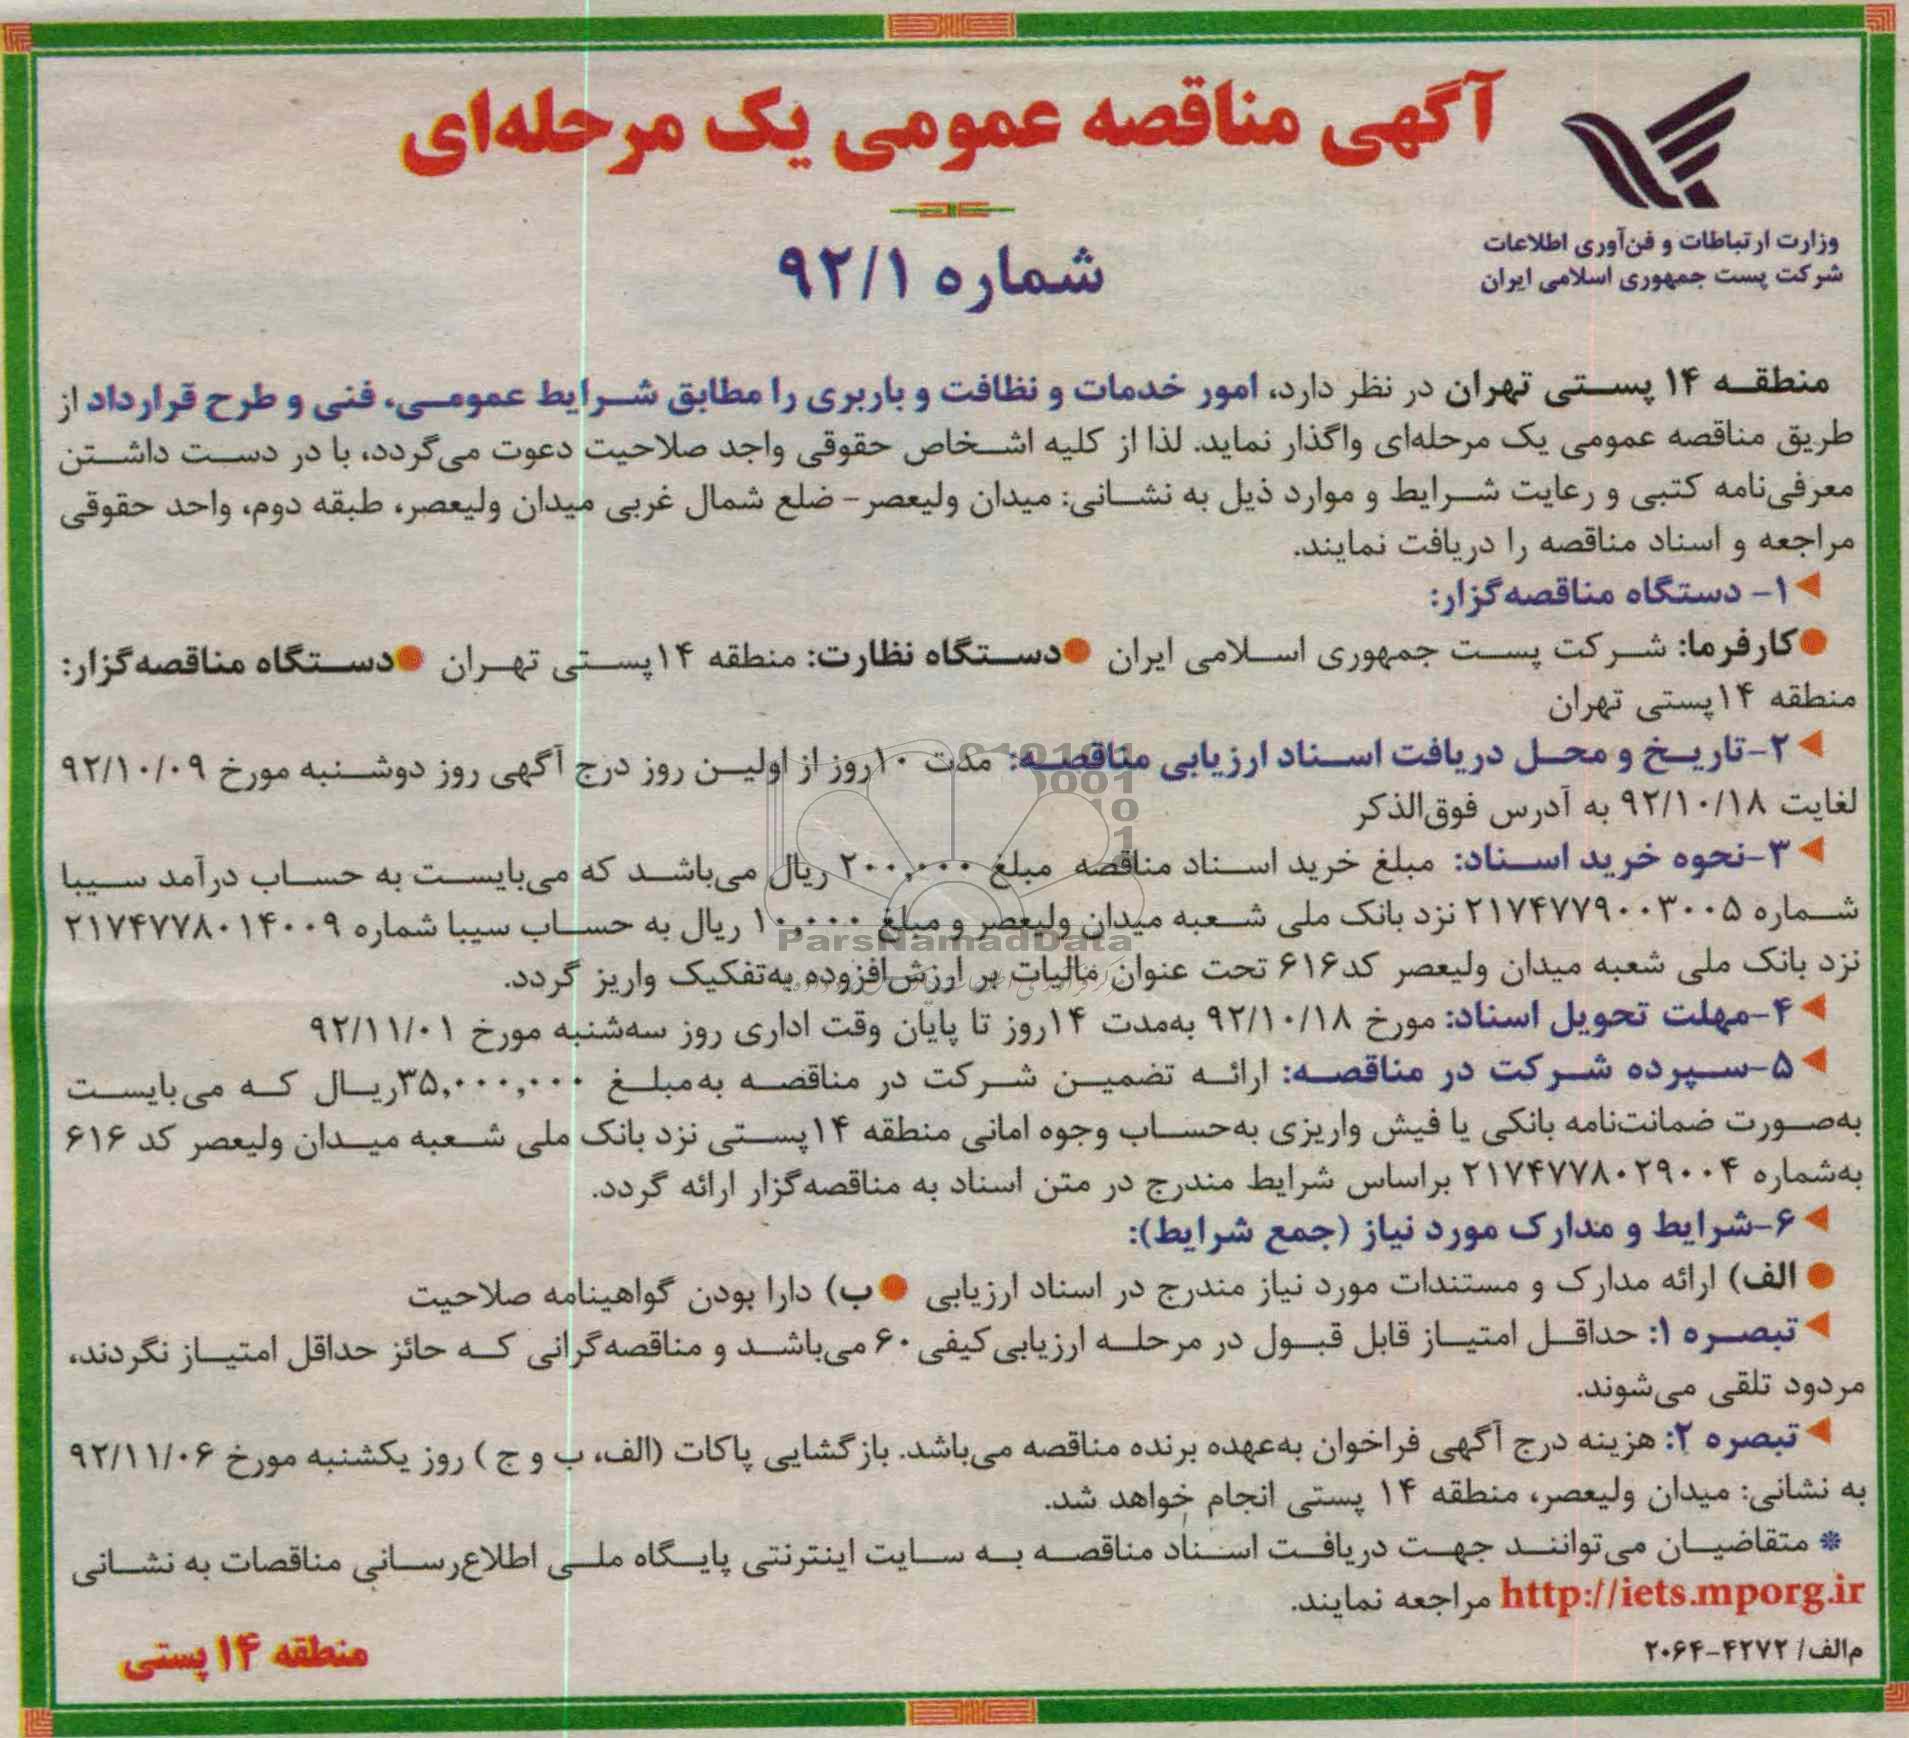 آگهی مناقصه عمومی یک مرحله‌ای
شماره ۹۲/۱
وزارت ارتباطات و فن‌آوری اطلاعات
شرکت پست جمهوری اسلامی ایران
منطقه ۱۴ پستی تهران در نظر دارد، امور خدمات و نظافت و باربری را مطابق شرایط عمومی، فنی و طرح قرارداد از
طریق مناقصه عمومی یک مرحله‌ای واگذار نماید. لذا از کلیه اشخاص حقوقی واجد صلاحیت دعوت می‌گردد، با در دست داشتن
معرفی‌نامه کتبی و رعایت شرایط و موارد ذیل به نشانی: میدان ولیعصر- ضلع شمال غربی میدان ولیعصر، طبقه دوم، واحد حقوقی
مراجعه و اسناد مناقصه را دریافت نمایند.
۱- دستگاه مناقصه‌گزار:
کارفرما: شرکت پست جمهوری اسلامی ایران ● دستگاه نظارت: منطقه ۱۴پستی تهران ● دستگاه مناقصه‌گزار:
منطقه ۱۴پستی تهران
۲-تاریخ و محل دریافت اسناد ارزیابی مناقصه: مدت ۱۰روز از اولین روز درج آگهی روز دوشنبه مورخ ۹۲/۱۰/۰۹
لغایت ۹۲/۱۰/۱۸ به آدرس فوق‌الذکر
۳-نحوه خرید اسناد: مبلغ خرید اسناد مناقصه مبلغ ۲۰۰,۰۰۰ ریال می‌باشد که می‌بایست به حساب درآمد سیبا
شماره ۲۱۷۴۷۷۹۰۰۳۰۰۵ نزد بانک ملی شعبه میدان ولیعصر و مبلغ ۱۰,۰۰۰ ریال به حساب سیبا شماره ۲۱۷۴۷۷۸۰۱۴۰۰۹
نزد بانک ملی شعبه میدان ولیعصر کد۶۱۶ تحت عنوان مالیات بر ارزش‌افزوده به‌تفکیک واریز گردد.
۴-مهلت تحویل اسناد: مورخ ۹۲/۱۰/۱۸ به‌مدت ۱۴روز تا پایان وقت اداری روز سه‌شنبه مورخ ۹۲/۱۱/۰۱
۵-سپرده شرکت در مناقصه: ارائه تضمین شرکت در مناقصه به‌مبلغ ۳۵,۰۰۰,۰۰۰ریال که می‌بایست
به‌صورت ضمانت‌نامه بانکی یا فیش واریزی به‌حساب وجوه امانی منطقه ۱۴پستی نزد بانک ملی شعبه میدان ولیعصر کد ۶۱۶
به‌شماره ۲۱۷۴۷۷۸۰۲۹۰۰۴ براساس شرایط مندرج در متن اسناد به مناقصه‌گزار ارائه گردد.
۶-شرایط و مدارک مورد نیاز (جمع شرایط):
● الف) ارائه مدارک و مستندات مورد نیاز مندرج در اسناد ارزیابی ● ب) دارا بودن گواهینامه صلاحیت
تبصره ۱: حداقل امتیاز قابل قبول در مرحله ارزیابی‌کیفی ۶۰ می‌باشد و مناقصه‌گرانی که حائز حداقل امتیاز نگردند،
مردود تلقی می‌شوند.
تبصره ۲: هزینه درج آگهی فراخوان به‌عهده برنده مناقصه می‌باشد. بازگشایی پاکات (الف، ب و ج ) روز یکشنبه مورخ ۹۲/۱۱/۰۶
به نشانی: میدان ولیعصر، منطقه ۱۴ پستی انجام خواهد شد.
* متقاضیان می‌توانند جهت دریافت اسناد مناقصه به سایت اینترنتی پایگاه ملی اطلاع‌رسانی مناقصات به نشانی
http://iets.mporg.ir مراجعه نمایند.
م‌الف/ ۴۲۷۲-۲۰۶۴
منطقه ۱۴ پستی
ParsNamadData